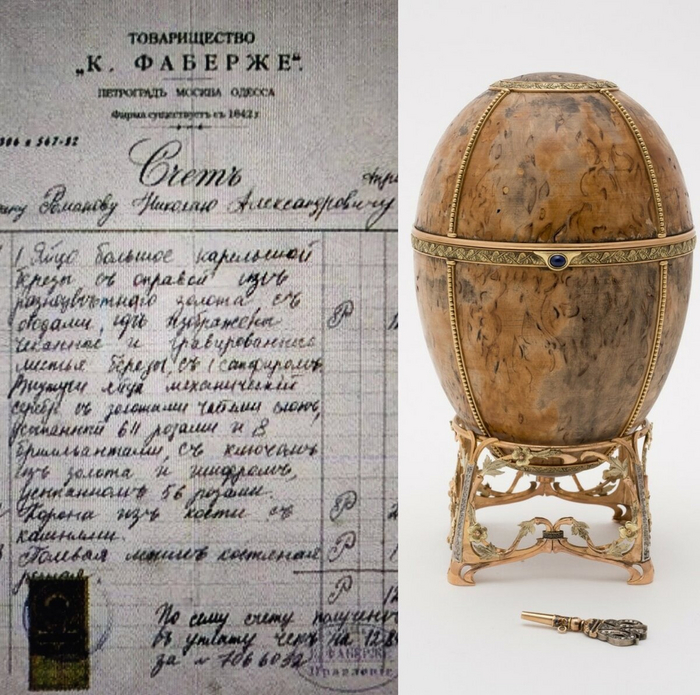 ТОВАРИЩЕСТВО
„К. ФАБЕРЖЕ“.
ПЕТРОГРАДЪ МОСКВА ОДЕССА
Фирма существуетъ съ 1842 г
306 и 567-82
Счетъ
Романову Николаю Александровичу
1 Яйцо большое карельской
березы съ оправой изъ
разноцвѣтнаго золота съ
ободами, гдѣ изображены
чеканные и гравированные
листья березы, съ 1 сапфиромъ.
Внутри яйца механическій
серебр съ золотыми слонъ,
усыпанный 611 розами и 8
брильянтами, съ ключомъ
изъ золота и шифромъ,
усыпанномъ 56 розами.
Корона изъ кости съ
камнями.
костяная
По сему счету получено
въ уплату чекъ на
за № 706 6032
К. ФАБЕРЖЕ
Правленіе